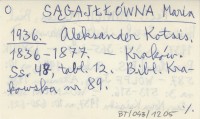 O SĄGAJŁŁÓWNA Maria
1936. Aleksander Kotsis.
1836-1877. Kraków.
Ss. 48, tabl. 12. Bibl. Kra-
kowska nr 89.
./.
BT/043/12.05